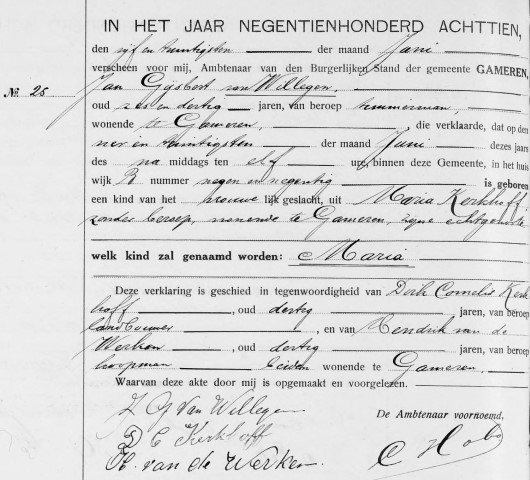 IN HET JAAR NEGENTIENHONDERD ACHTTIEN,
den vijf en twintigsten der maand Juni
verscheen voor mij, Ambtenaar van den Burgerlijken Stand der gemeente GAMEREN,
№. 25 Jan Gijsbert van Willegen,
oud zes en dertig jaren, van beroep timmerman,
wonende te Gameren, die verklaarde, dat op den
vier en twintigsten der maand Juni dezes jaars
des na middags ten elf ure, binnen deze Gemeente, in het huis
wijk B nummer negen en negentig is geboren
een kind van het vrouwelijk geslacht, uit Maria Kerkhoff
zonder beroep, wonende te Gameren, zijne echtgenoote
welk kind zal genaamd worden: Maria
Deze verklaring is geschied in tegenwoordigheid van Dirk Cornelis Kerk
hoff, oud dertig jaren, van beroep
landbouwer, en van Hendrik van de
Werken, oud dertig jaren, van beroep
koopman beiden wonende te Gameren.
Waarvan deze akte door mij is opgemaakt en voorgelezen.
J G van Willegen De Ambtenaar voornoemd.
D C Kerkhoff
H. van de Werken.